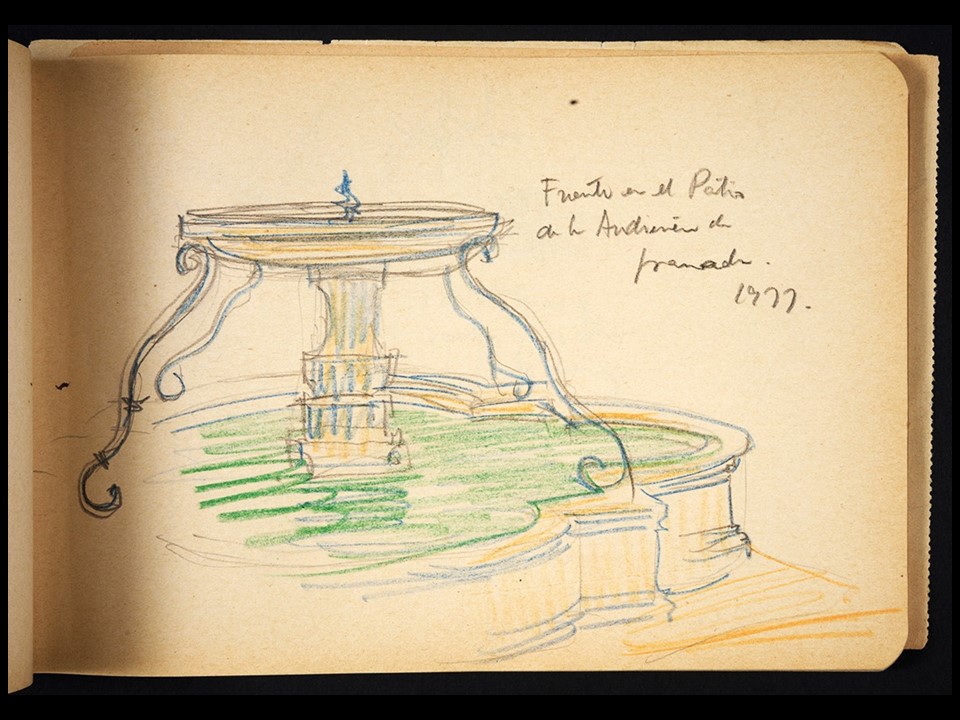 Fuente en el Patio
de la Audiencia de
Granada.
1977.